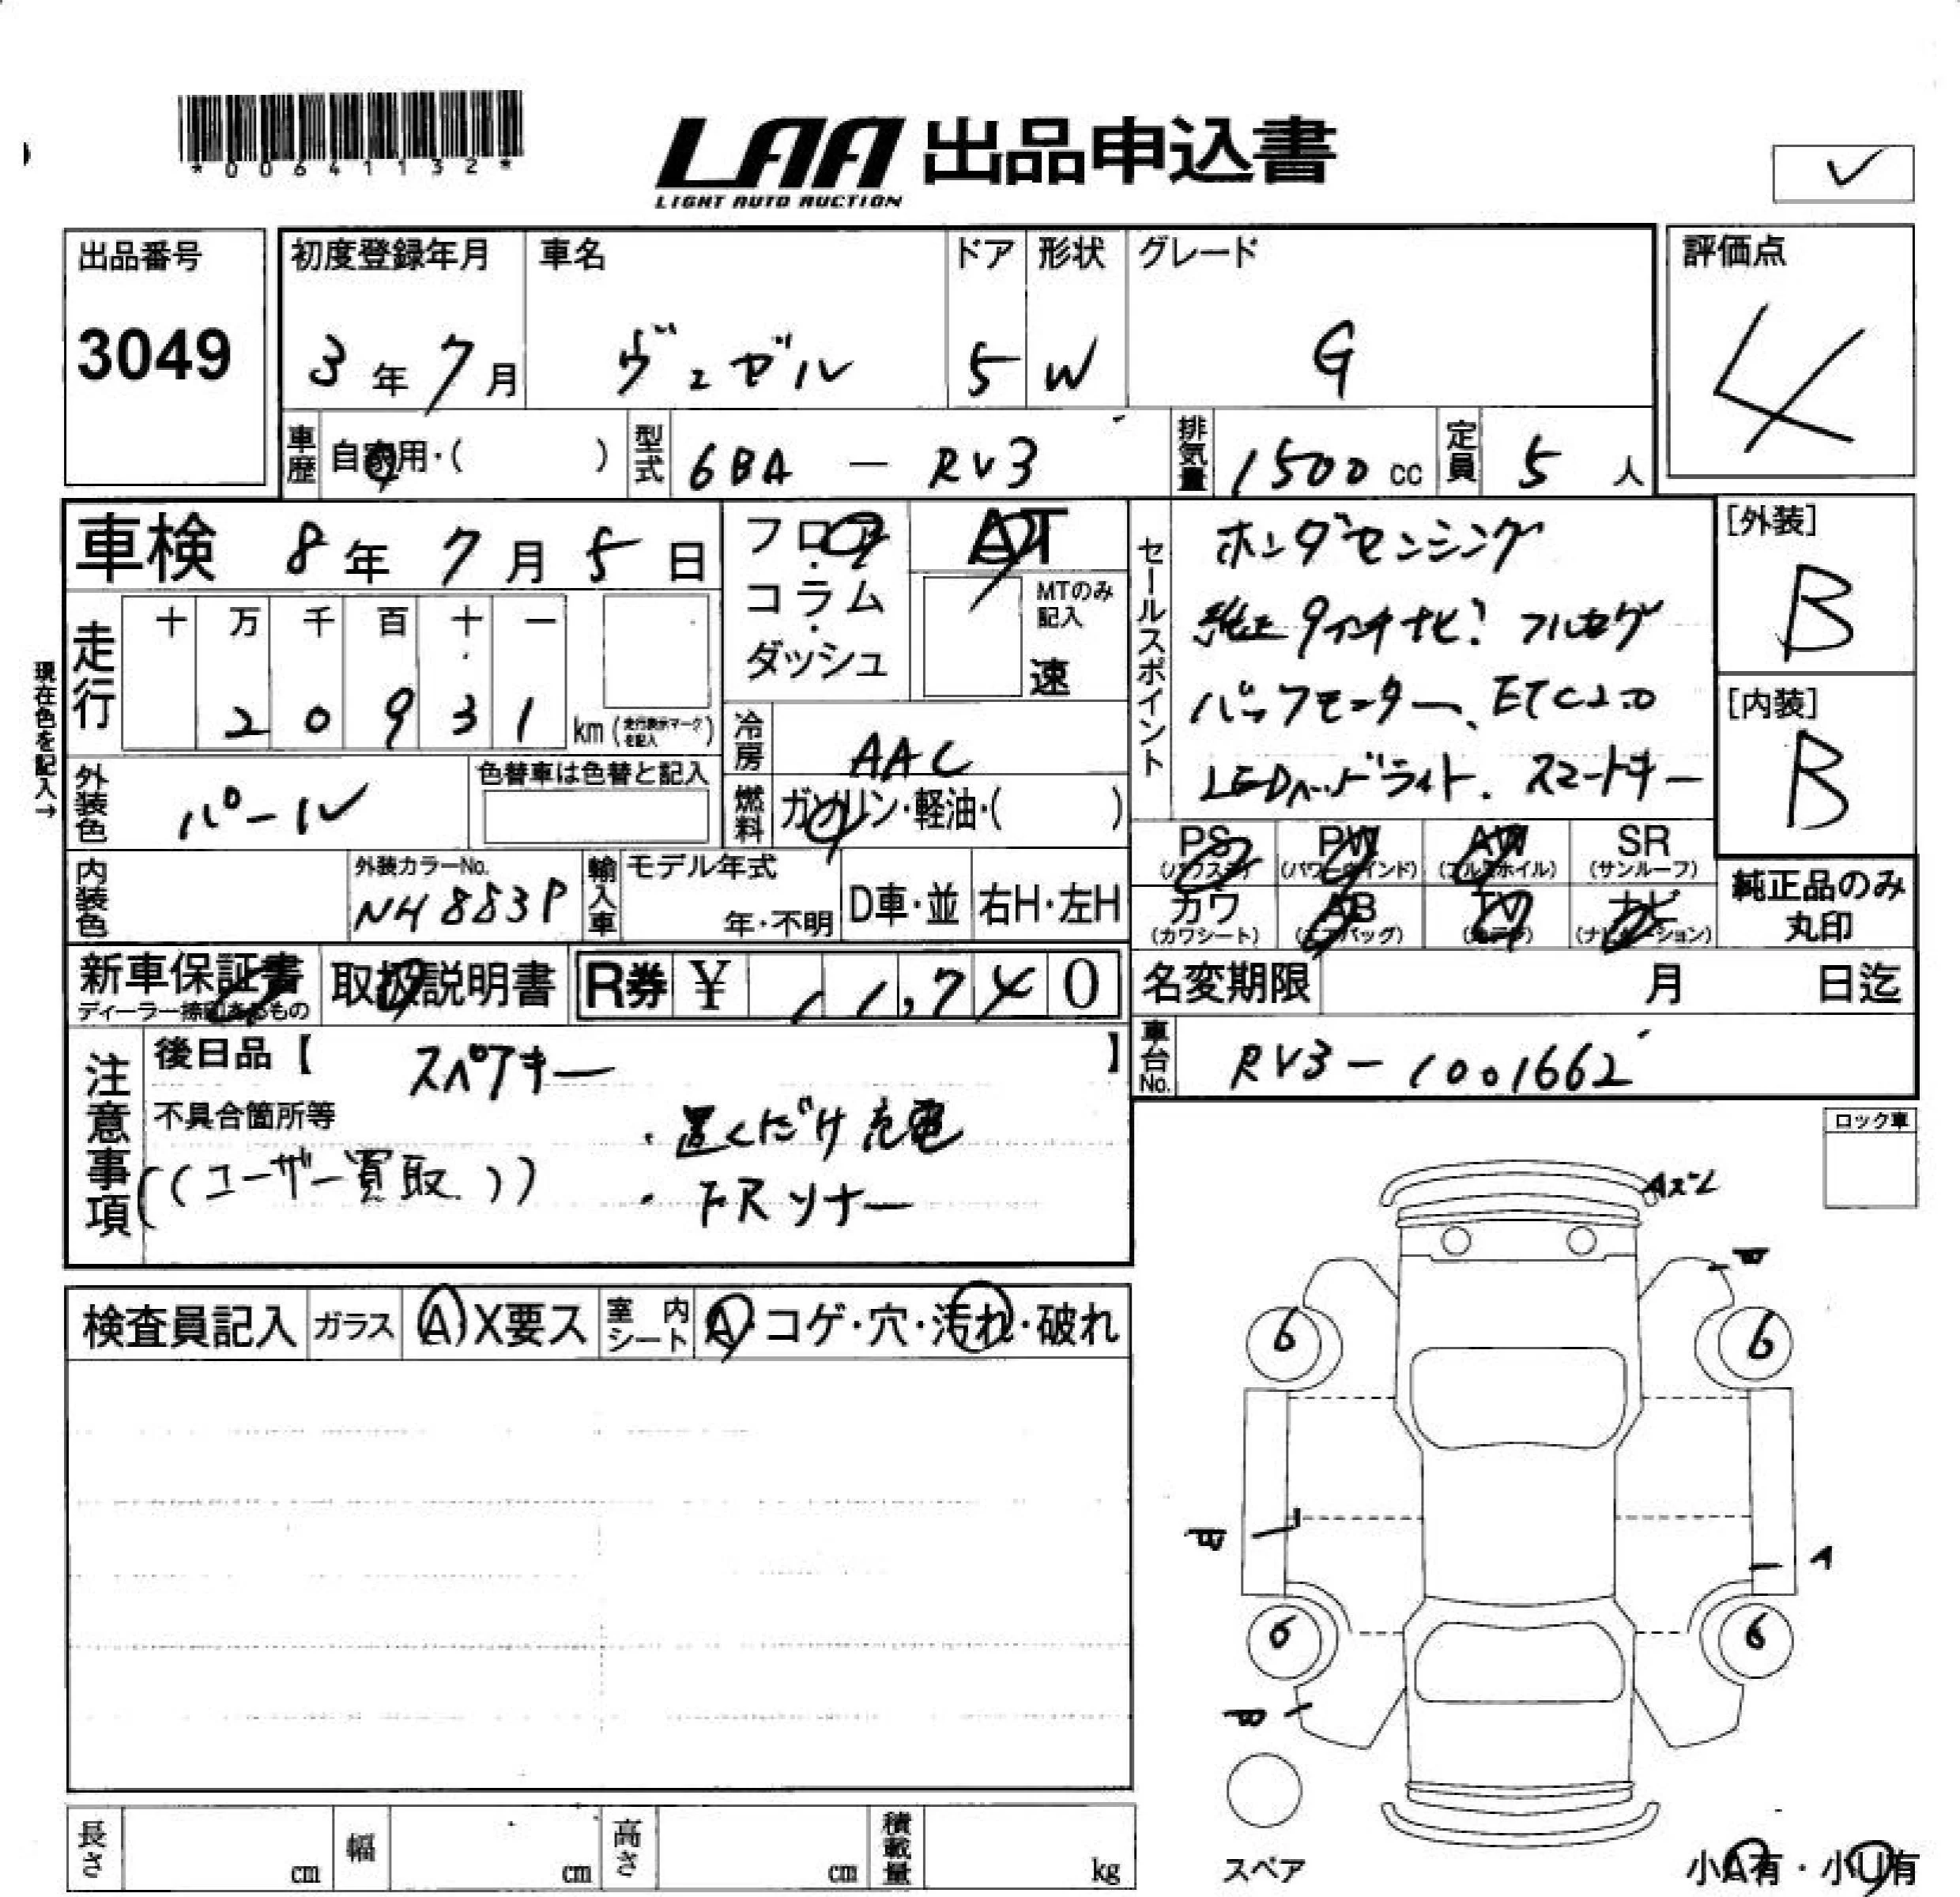 *00641132*
LAA 出品申込書
LIGHT AUTO AUCTION
出品番号
3049
初度登録年月
3年7月
車名
ヴェゼル
ドア
5
形状
W
グレード
G
評価点
4
車歴 自家用・( )
型式 6BA - RV3
排気量 1500 cc
定員 5 人
車検 8年7月5日
フロア・コラム・ダッシュ
AT
MTのみ記入
速
セールスポイント
ホンダセンシング
純正9インチナビ? フルセグ
バックモーター、ETC2.0
LEDヘッドライト、スマートキー
[外装]
B
[内装]
B
現在色を記入→
走行
十 万 千 百 十 一
2 0 9 3 1
km (走行表示マークを記入)
冷房 AAC
燃料 ガソリン・軽油・( )
外装色 パール
色替車は色替と記入
内装色
外装カラーNo.
NH883P
輸入車
モデル年式
年・不明
D車・並
右H・左H
PS (パワステ)
PW (パワーウインド)
AW (アルミホイル)
SR (サンルーフ)
カワ (カワシート)
AB (エアバッグ)
TV
ナビ (ナビゲーション)
純正品のみ丸印
新車保証書
ディーラー捺印あるもの
取扱説明書
R券 ¥ 11,740
名変期限 月 日迄
車台No. RV3-1001662
注意事項
後日品【 スペアキー 】
不具合箇所等
・置くだけ充電
((ユーザー買取))
・FRソナー
ロック車
検査員記入
ガラス A X要ス
室内シート A・コゲ・穴・汚れ・破れ
6
6
A
6
6
スペア
小A有・小U有
長さ cm
幅 cm
高さ cm
積載量 kg